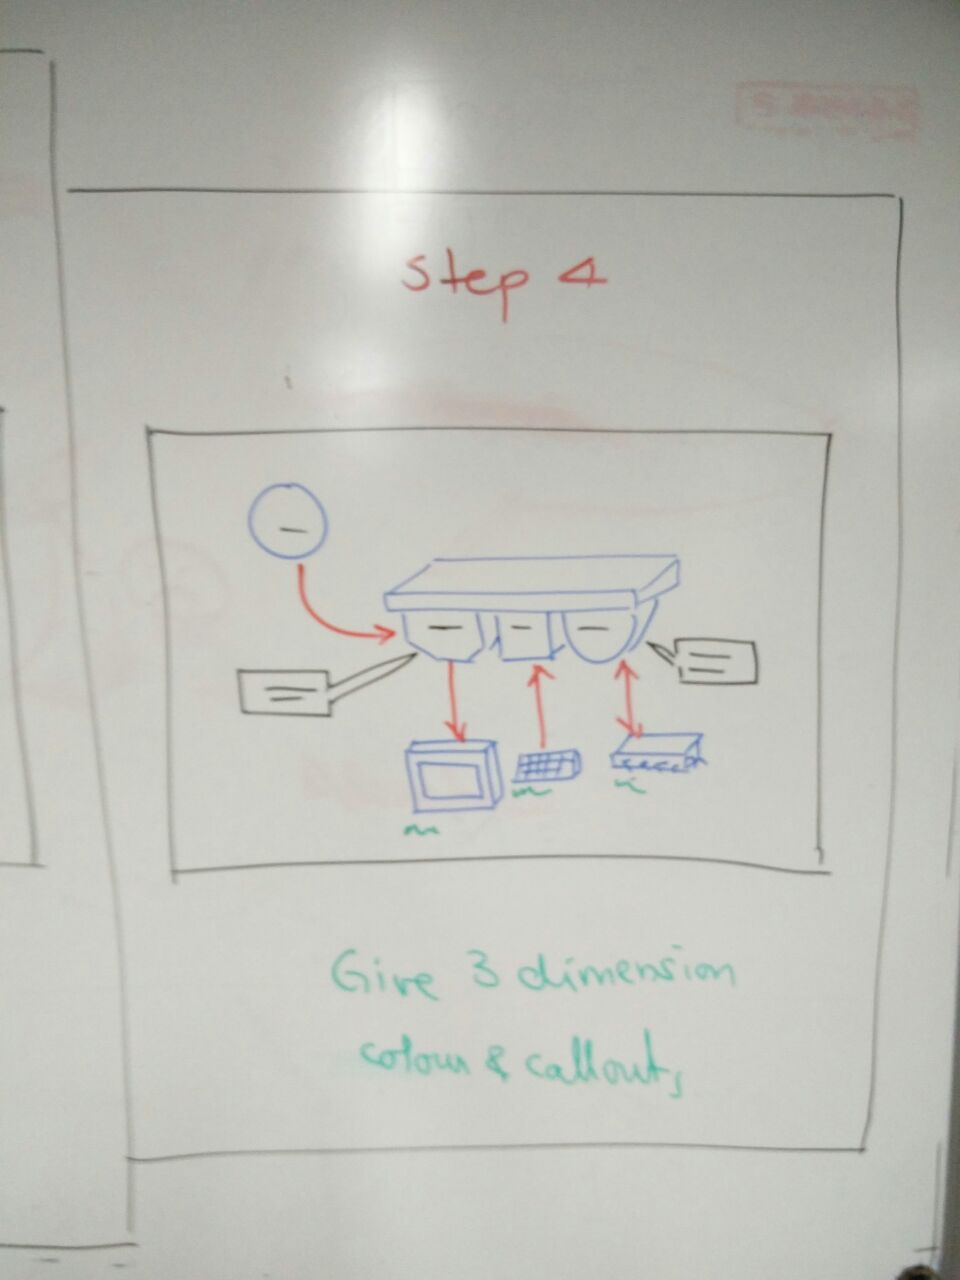 Step 4
Give 3 dimension
colour & callouts